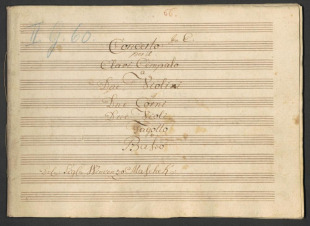 66.
II. g. 60.
Concerto in C
per il
Clavi Cembalo
a
Due Violini
Due Corni
Due Viole
Fagotto
e
Basso
Del Sigl: Wincenzo Maschek